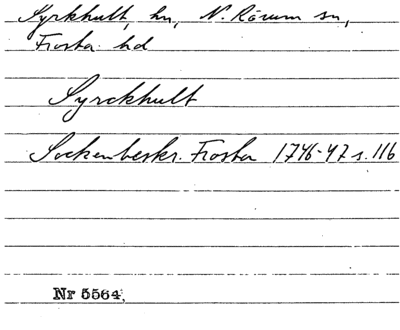 Syrkhult, hn, N. Rörum sn,
Frosta hd
Syrckhult
Sockenbeskr. Frosta 1746-47 s. 116
Nr 5564.